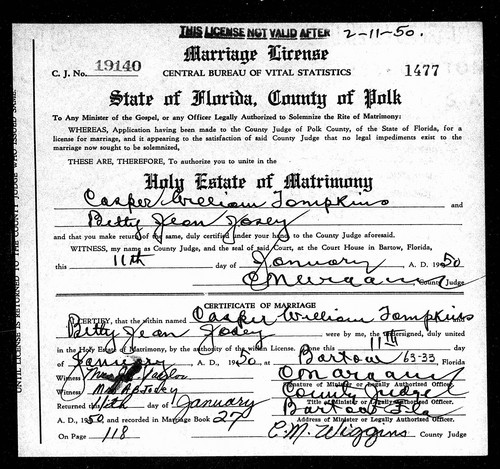 THIS LICENSE NOT VALID AFTER 2-11-50.
Marriage License
C. J. No. 19140 CENTRAL BUREAU OF VITAL STATISTICS 1477
State of Florida, County of Polk
To Any Minister of the Gospel, or any Officer Legally Authorized to Solemnize the Rite of Matrimony:
WHEREAS, Application having been made to the County Judge of Polk County, of the State of Florida, for a
license for marriage, and it appearing to the satisfaction of said County Judge that no legal impediments exist to the
marriage now sought to be solemnized,
THESE ARE, THEREFORE, To authorize you to unite in the
Holy Estate of Matrimony
Casper William Tompkins and
Betty Jean Josey
and that you make return of the same, duly certified under your hand to the County Judge aforesaid.
WITNESS, my name as County Judge, and the seal of said Court, at the Court House in Bartow, Florida,
this 11th day of January A. D. 1950
County Judge
CERTIFICATE OF MARRIAGE
I CERTIFY, that the within named Casper William Tompkins
Betty Jean Josey were by me, the undersigned, duly united
in the Holy Estate of Matrimony, by the authority of the within License. Done this 11th
January A. D., 1950 at Bartow 63-33, Florida
Witness Taylor
Signature of Minister or Legally Authorized Officer.
Witness Mrs
County Judge
Title of Minister or Legally Authorized Officer.
Returned this 11th day of January Bartow Fla
A. D., 1950, and recorded in Marriage Book 27 Address of Minister or Legally Authorized Officer.
On Page 118 C. M. Wiggins County Judge
UNTIL LICENSE IS RETURNED TO THE COUNTY JUDGE WHO ISSUED SAME